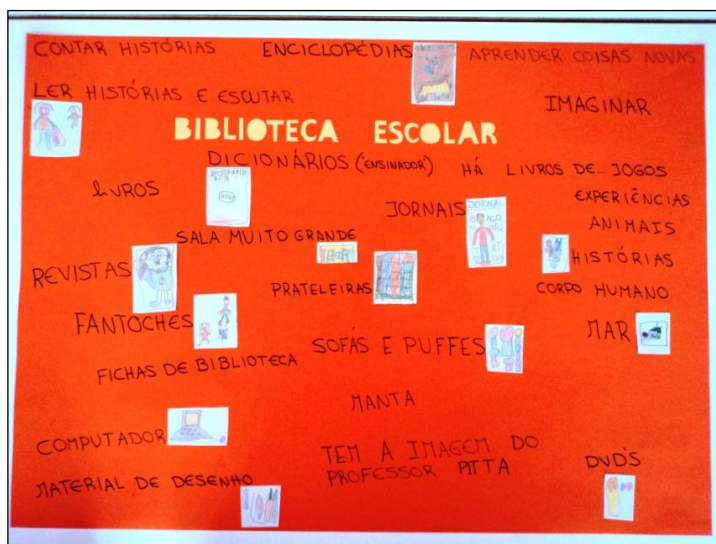 CONTAR HISTÓRIAS
ENCICLOPÉDIAS
APRENDER COISAS NOVAS
LER HISTÓRIAS E ESCUTAR
IMAGINAR
BIBLIOTECA ESCOLAR
DICIONÁRIOS ('ENSINADOR')
HÁ LIVROS DE... JOGOS
LIVROS
EXPERIÊNCIAS
JORNAIS
JORNAL
ANIMAIS
SALA MUITO GRANDE
HISTÓRIAS
REVISTAS
PRATELEIRAS
CORPO HUMANO
FANTOCHES
MAR
SOFÁS E PUFFES
FICHAS DE BIBLIOTECA
MANTA
COMPUTADOR
TEM A IMAGEM DO
PROFESSOR PITTA
DVD'S
MATERIAL DE DESENHO